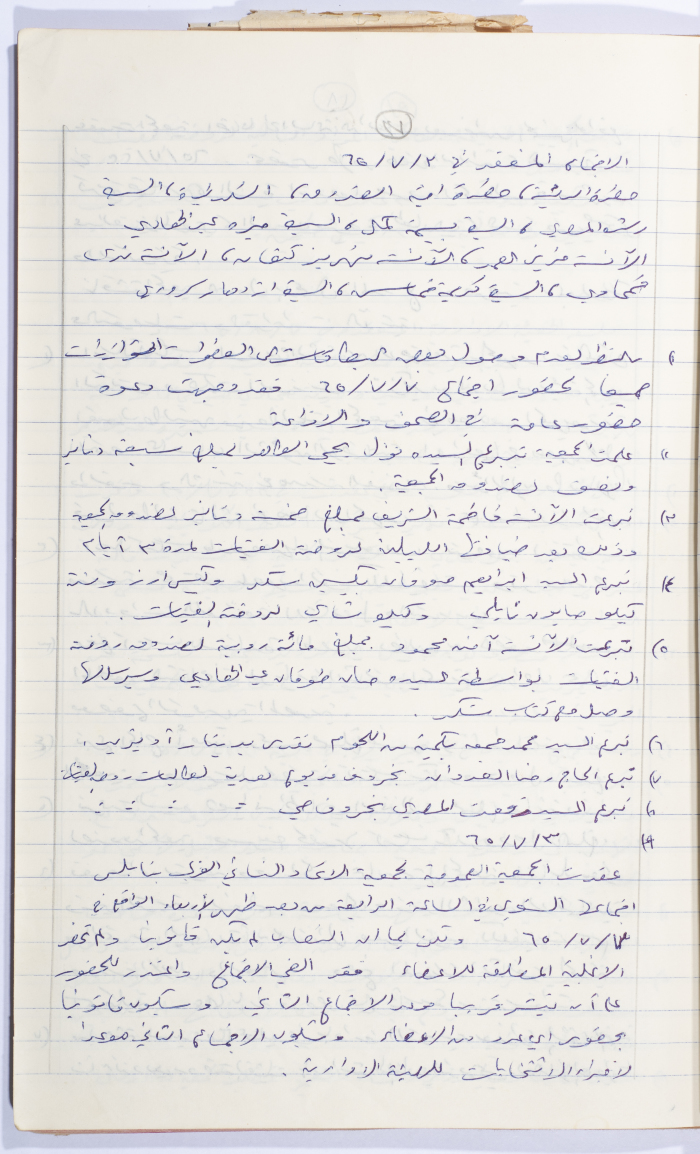 ٧١
الاجتماع المنعقد في ٦٥/٧/٢
حضرة الرئيسة، حضرة امينة الصندوق، السكرتيرة، السيدة
رشد المصري، السيدة بسيمة كمال، السيدة منيره عبد الهادي
الآنسة مزين العمد، الآنسة نهريز كنعان، الآنسة ندى
ضحاوي، السيدة كريمة خماس، السيدة ازدهار سروري
١ بالنظر لعدم وصول بعض البطاقات الى العضوات المؤازرات
جميعا لحضور اجتماع ٦٥/٧/٧ فقد وجهت دعوة
حضور عامة في الصحف والاذاعة
٢ علمت الجمعية بتبرع السيده نوال يحيى الطاهر بمبلغ سبعة دنانير
ونصف لصندوق الجمعية.
٣) تبرعت الآنسة فاطمة الشريف بمبلغ خمسة دنانير لصندوق الجمعية
وذلك بعد ضيافتها الليبية لروضة الفتيات لمدة ٣ أيام
٤) تبرع السيد ابراهيم صوفان بكيس سكر وكيس ارز وستة
كيلو صابون نابلسي وكيلو شاي لروضة الفتيات.
٥) تبرعت الآنسة آمنه محمود بمبلغ مائة روبية لصندوق روضة
الفتيات بواسطة السيده حنان طوقان عبد الهادي وسيرسل لها
وصل مع كتاب شكر.
٦) تبرع السيد محمد جمعه بكمية من اللحوم تقدر بدينار أو يزيد.
٧ تبرع الحاج رضا العنداني بخروف مذبوح هدية لطالبات روضة الفتيات
٨ تبرع السيد رفعت المصري بخروف حي " " " "
٩) ٦٥/٧/٣
عقدت الجمعية العمومية لجمعية الاتحاد النسائي العربي بنابلس
اجتماعها السنوي في الساعة الرابعة من بعد ظهر الأربعاء الواقع في
٦٥/٧/٣ ولكن بما ان النصاب لم يكن قانونيا ولم تحضر
الاغلبية المطلقة للاعضاء فقد الغي الاجتماع واعتذر للحضور
على أن ينشر قريبا موعد الاجتماع الثاني وسيكون قانونيا
بحضور اي عدد من الاعضاء وسيكون الاجتماع الثاني موعدا
لاجراء الانتخابات للهيئة الادارية.